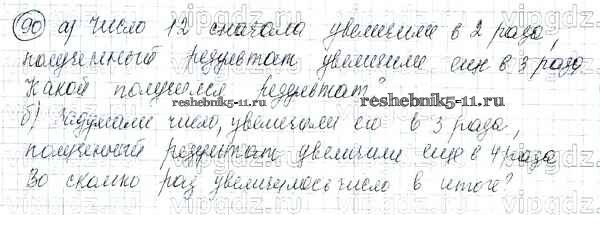 90 а) Число 12 сначала увеличили в 2 раза,
полученный результат увеличили еще в 3 раза.
Какой получился результат?
reshebnik5-11.ru
reshebnik5-11.ru
б) Задумали число, увеличили его в 3 раза,
полученный результат увеличили еще в 4 раза.
Во сколько раз увеличилось число в итоге?
vipgdz.